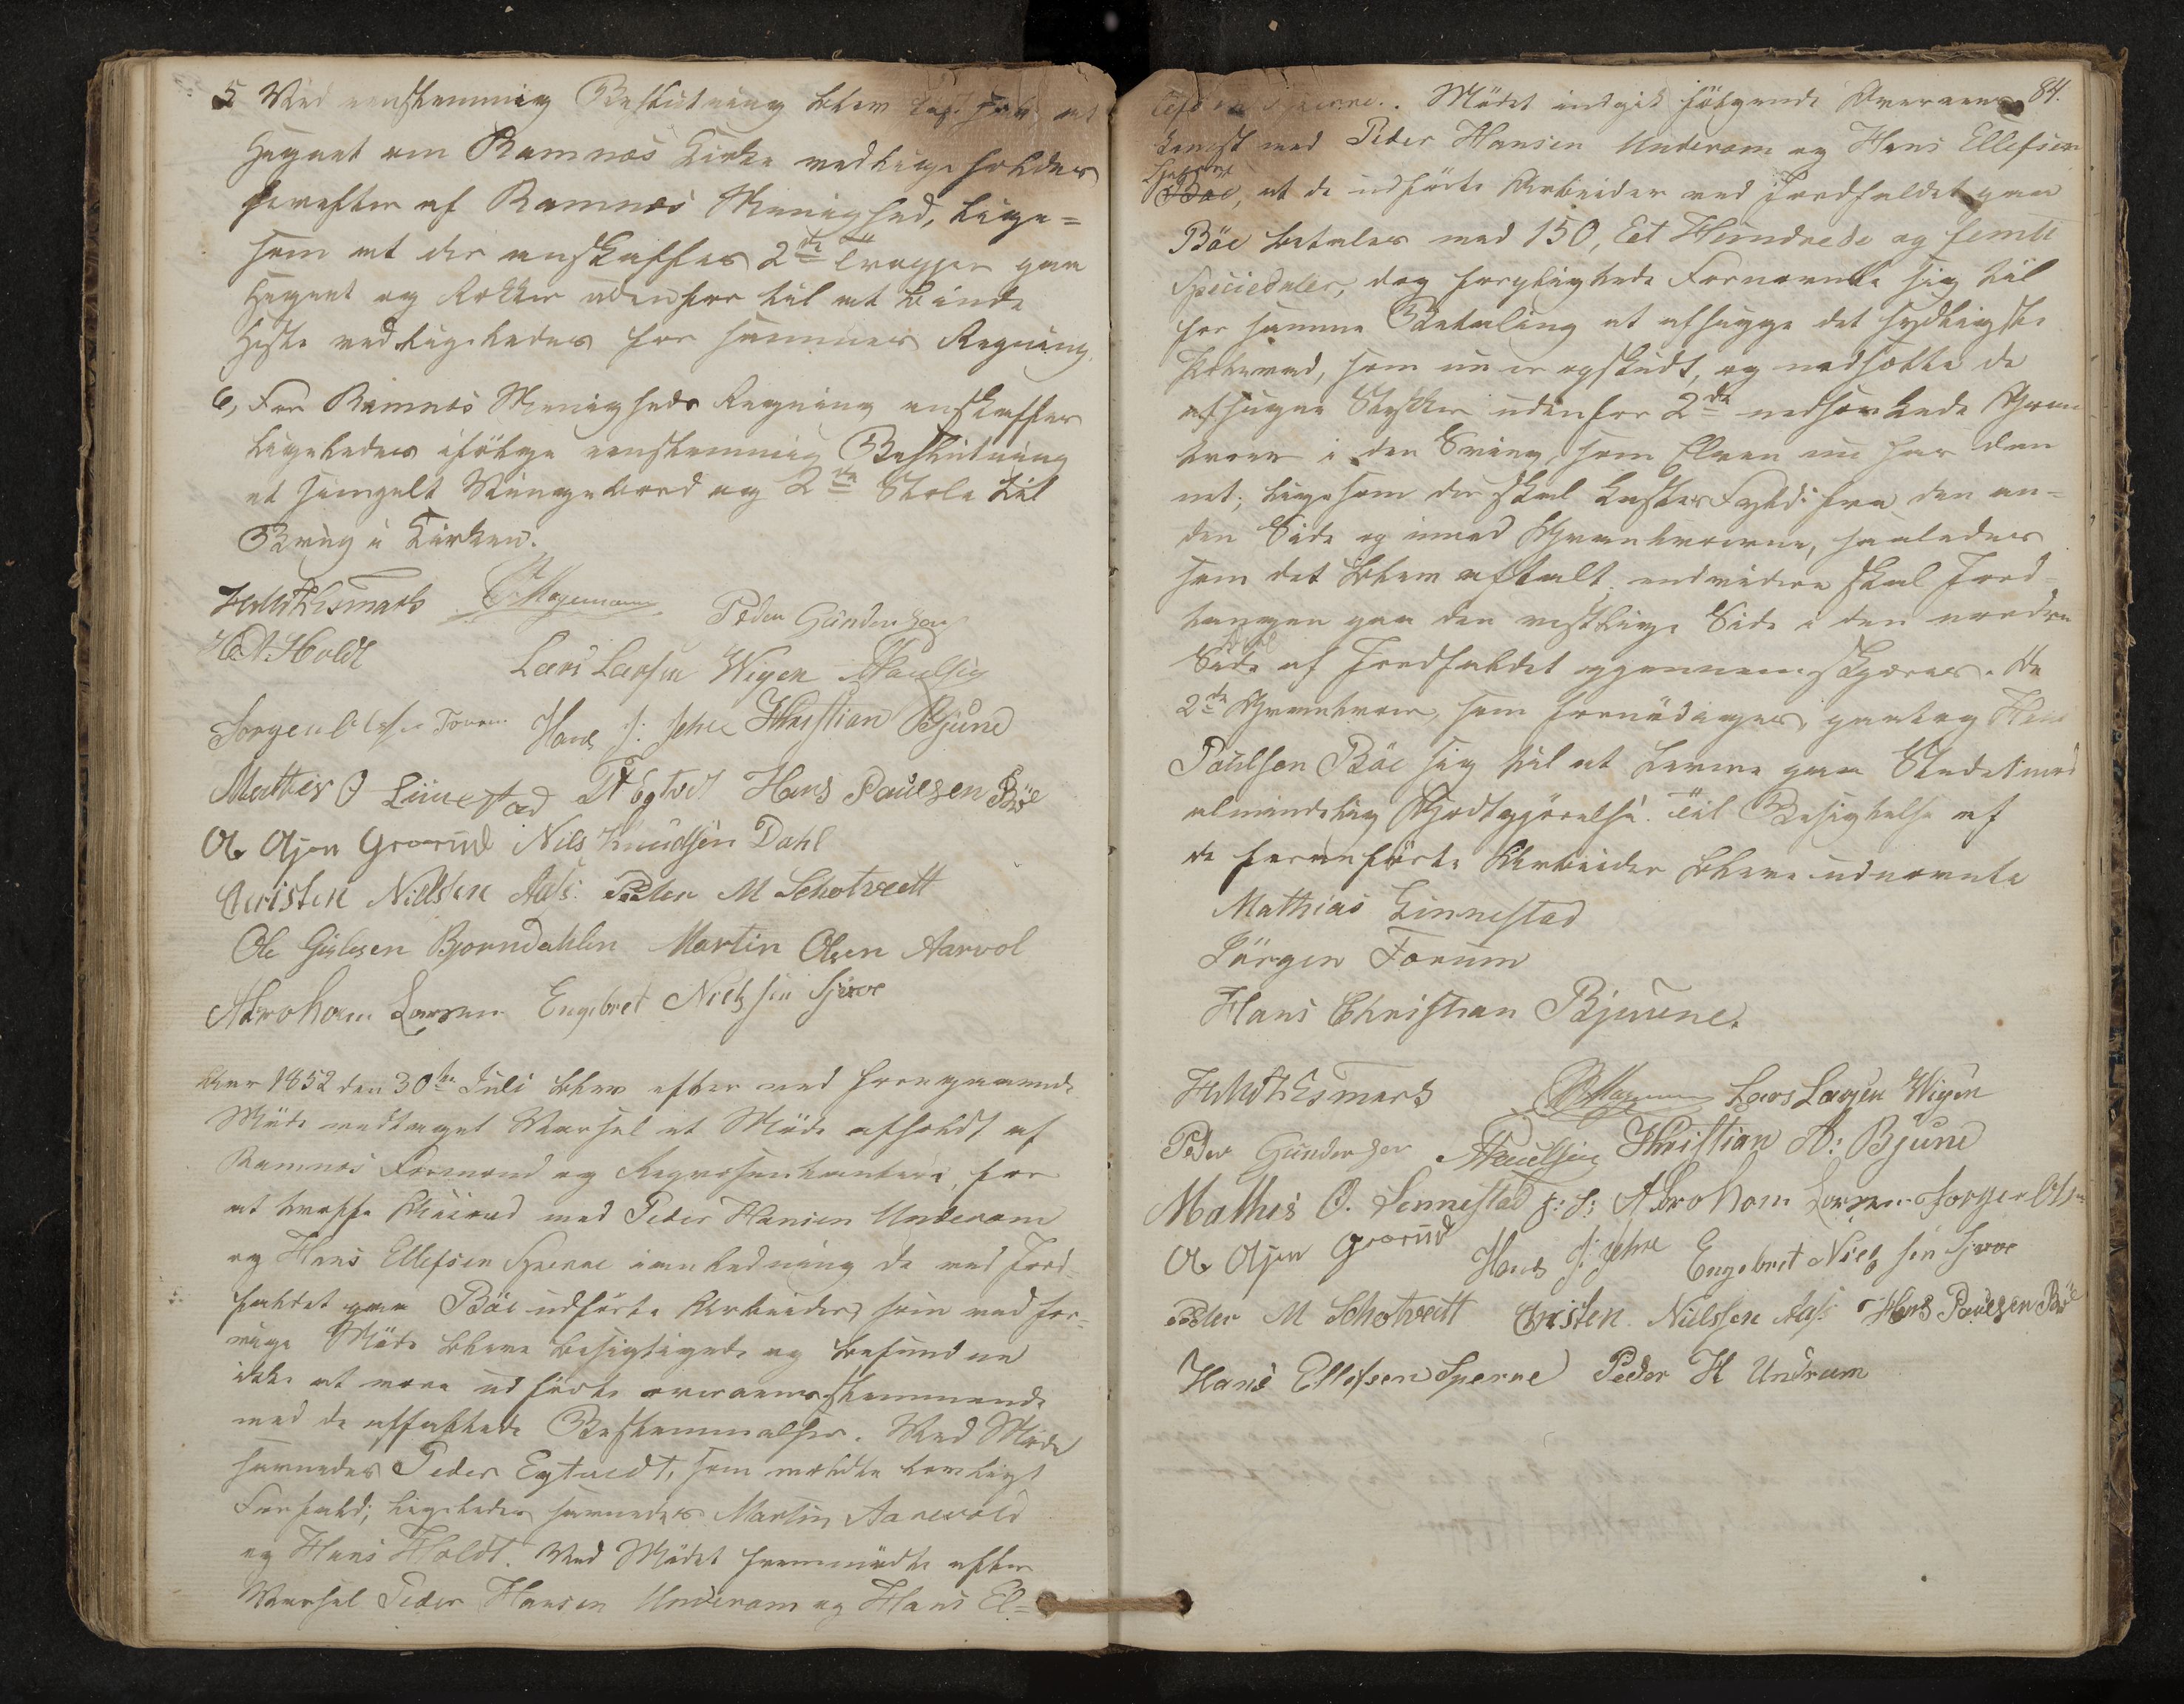 5 Ved eenstemmig Beslutning blev at
Hegnet om Ramnæs Kirke vedligeholdes
herefter af Ramnæs Menighed, lige=
som at der anskaffes 2de Trapper paa
Hegnet og Kroker udenfor til at binde
Heste ved ligeledes for sammes Regning
6, For Ramnæs Menigheds Regning anskaffes
ligeledes ifölge eenstemmig Beslutning
et simpelt Bord og 2de Stole til
Brug i Kirken.
Magemann Peder Gundersen
H. Holdt Lars Larsen Wigen Paulsen
Jørgen Olsen Forum Hans J: Jehre Christian Bjune
Mathis O Linnestad Hans Paulsen Böe
Ole Olsen Grorud Nils Knudsen Dahl
Christen Nielsen Aas: Peder M Schotvedt
Ole Gislesen Bjorndahlen Martin Olsen Aarvol
Abraham Larsen Engebret Nielsen Sjeve
Aar 1852 den 30te Juli blev efter ved foregaaende
Möde vedtaget Varsel et Möde afholdt af
Ramnæs Formænd og Repræsentantere, for
at træffe Accord med Peder Hansen Underom
og Hans Ellefsen Sperne i anledning de ved Jord=
faldet paa Böe udförte Arbeider, som ved for=
rige Möde bleve besigtigede og befundne
ikke at være udförte overeensstemmende
med de affattede Bestemmelser. Ved Möde
savnedes Peder Egtvedt, som meldte lovligt
Forfald; ligeledes savnedes Martin Aarevold
og Hans Holdt. Ved Mödet fremmödte efter
Varsel Peder Hansen Underom og Hans El=
84.
lefsen Sperne. Mödet indgik fölgende Overeens=
komst med Peder Hansen Underom og Hans Ellefsen
Sperne
Böe, at de udförte Arbeider ved Jordfaldet paa
Böe betales med 150, Et Hundrede og femti
Speciedaler, dog forpligtede Fornævnte sig til
for samme Betaling at afhugge det sydligste
, som nu er opskudt, og nedsætte de
afhugne Stykker udenfor 2de nedsænkede Gran
træer i den Sving, som Elven nu har dan
net; ligesom der skal kastes Fyld fra den an=
den Side og imod Grantræerne, saaledes
som det blev aftalt. endvidere skal Jord=
tangen paa den vestlige Side i den nordre
Deel
Side af Jordfaldet gjennemskjæres. De
2de Grantræer, som fornödiges, paatog Hans
Paulsen Böe sig til at levere paa Stedet imod
almindelig Godtgjörelse. Til Besigtelse af
de foranförte Arbeider bleve udnævnte
Mathias Linnestad
Jörgen Forum
Hans Christian Bjuune.
Magemann Lars Larsen Wigen
Peder Gundersen Paulsen Christian H: Bjune
Mathis O. Linnestad Abraham Larsen Jorgen Olsen
Ole Olsen Grorud Hans J: Jehre Engebret Nielsen Sjeve
Peder M Schotvedt Christen Nielssen Aas: Hans Paulsen Böe
Hans Ellefsen Sperne Peder H Undrum